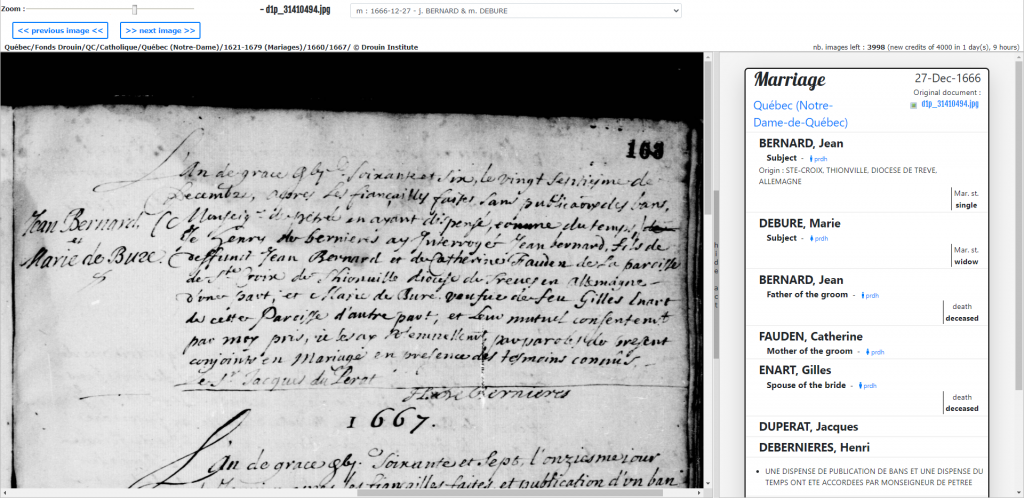 Zoom :
- d1p_31410494.jpg
m : 1666-12-27 - j. BERNARD & m. DEBURE
<< previous image <<
>> next image >>
Québec/Fonds Drouin/QC/Catholique/Québec (Notre-Dame)/1621-1679 (Mariages)/1660/1667/ © Drouin Institute
nb. images left : 3998 (new credits of 4000 in 1 day(s), 9 hours)
163
L'an de grace gbyc. Soixante et six, le vingt septiesme de
Decembre, apres les fiançailles faites sans publicaõn des bans,
Monseigr. de Petrée en ayant dispensé comme du temps
Je Henry de bernieres ay Interrogé Jean bernard, fils de
deffunct Jean Bernard et de Catherine Fauden de la paroisse
de Ste Croix de Thionville diocese de Treves en Allemagne
d'une part, et Marie de Bure, veufue de feu Gilles Enart
de cette Paroisse d'autre part, et leur mutuel consentemt
par moy pris, ie les ay solemnellemt par parolles de present
conjoints en Mariage en presence des tesmoins connus,
Le Sr. Jacques du Perat
H. de Bernieres
Jean Bernard
et
Marie de Bure.
1667.
L'an de grace gbyc. Soixante et Sept, l'onziesme iour
les fiançailles faites et publication d'un ban
Marriage
27-Dec-1666
Original document :
d1p_31410494.jpg
Québec (Notre-
Dame-de-Québec)
BERNARD, Jean
Subject - prdh
Origin : STE-CROIX, THIONVILLE, DIOCESE DE TREVE,
ALLEMAGNE
Mar. st.
single
DEBURE, Marie
Subject - prdh
Mar. st.
widow
BERNARD, Jean
Father of the groom - prdh
death
deceased
FAUDEN, Catherine
Mother of the groom - prdh
ENART, Gilles
Spouse of the bride - prdh
death
deceased
DUPERAT, Jacques
DEBERNIERES, Henri
UNE DISPENSE DE PUBLICATION DE BANS ET UNE DISPENSE DU
TEMPS ONT ETE ACCORDEES PAR MONSEIGNEUR DE PETREE